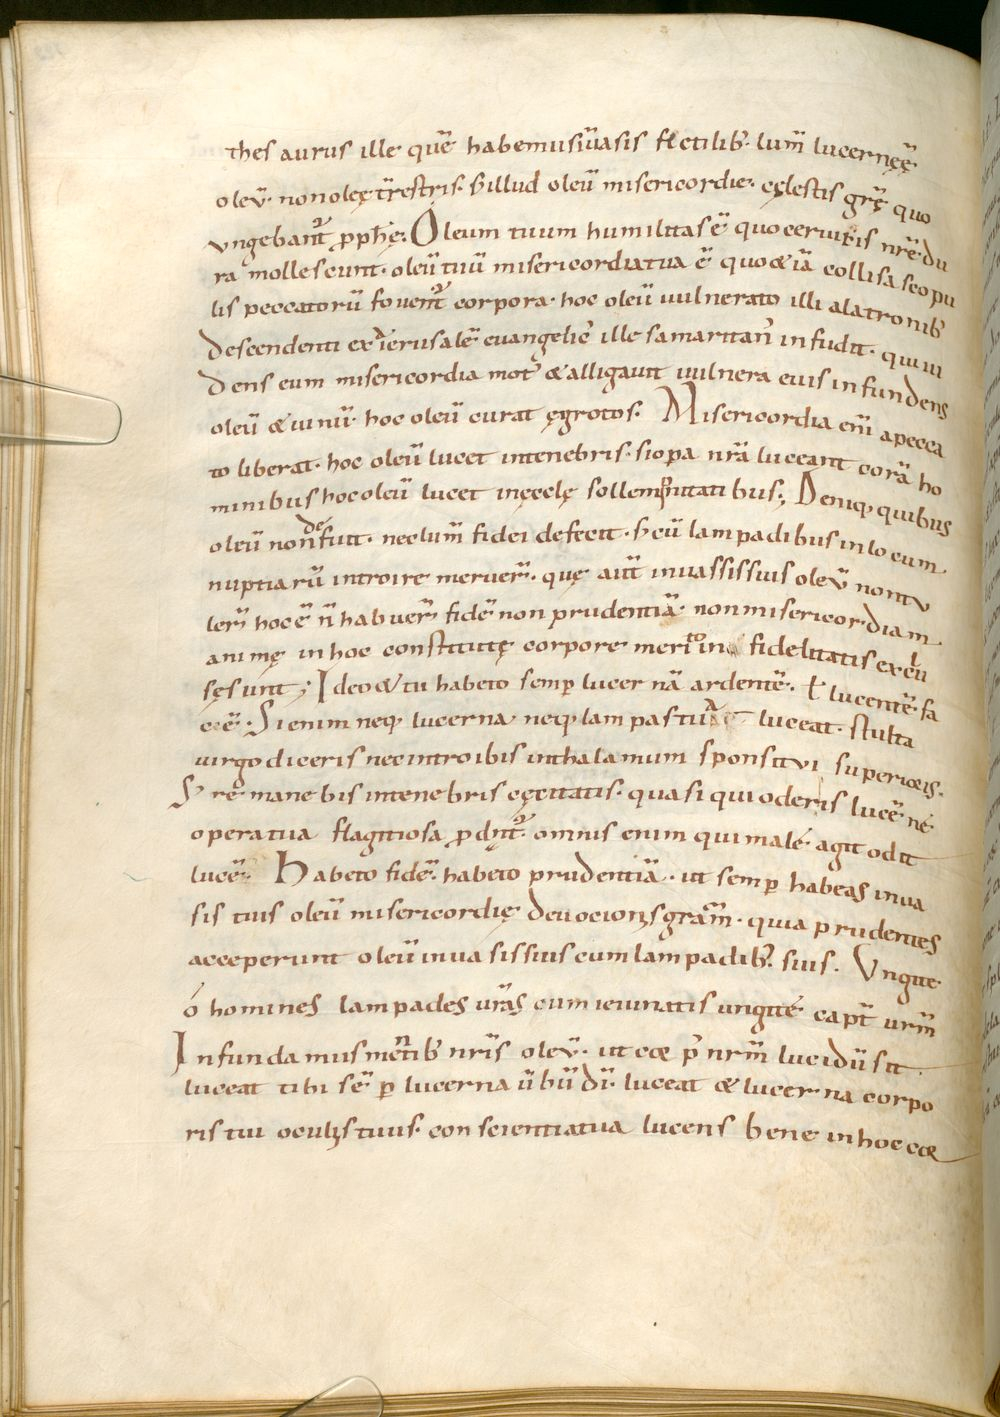 thesaurus ille quē habemus ī uasis fictilib; lum̄ lucernęę̄
oleū. non oleę tr̄estris. s; illud oleū misericordie. cęlestis gr̄ę quo
ungebant᷑ ꝓph̄ę. Oleum tuum humilitas ē quo ceruicis nr̄ę du
ra mollescunt. oleū tuū misericordia tua ē quo & iā collisa scopu
lis peccatorū fouent᷑ corpora. hoc oleū uulnerato illi a latronib;
descendenti ex ierusalē euangelic᾽ ille samaritan᾽ infudit. qui ui
dens eum misericordia mot᾽ & alligauit uulnera euis infundens
oleū & uinū. hoc oleū curat ęgrotos. Misericordia eni̅ a pecca
to liberat. hoc oleū lucet in tenebris. si oꝑa nr̄a luceant corā ho
minibus hoc oleū lucet in ęcclę sollempnitatibus; Deniq; quibus
oleū non defuit. nec lum̄ fidei defecit. s; cū lampadibus in locum
nuptiarū introire meruer̄. quę aut̄ in uassis suis oleū non tu
ler̄ hoc ē n̄ habuer̄ fidē non prudentiā. non misericordiam
animę in hoc constitutę corpore merito in fidelitatis exclu
sę sunt; Ideo & tu habeto semꝑ lucernā ardentē. & lucentē fa
cē. Si enim neq; lucerna neq; lampas tua luceat. stulta
uirgo diceris nec introibis in thalamum sponsi tui superioris.
S; remanebis in tenebris cęcitatis. quasi qui oderis lucē ne
opera tua flagitiosa ꝓdant᷑. omnis enim qui male agit odit
lucē. Habeto fidē. habeto prudentiā. ut semꝑ habeas in ua
sis tuis oleū misericordię deuocionis gram̄. quia prudentes
acceperunt oleū in uasis suis cum lampadib; suis. Ungite
o homines lampades ur̄as cum ieiunatis ungite capt̄ urm̄
Infundamus mentib; nr̄is oleū. ut coꝛ p̄ nrm̄ lucidū sit.
luceat tibi sē ꝑ lucerna ūbū dī. luceat & lucerna corpo
ris tui oculus tuus. conscientia tua lucens bene in hoc coꝛ